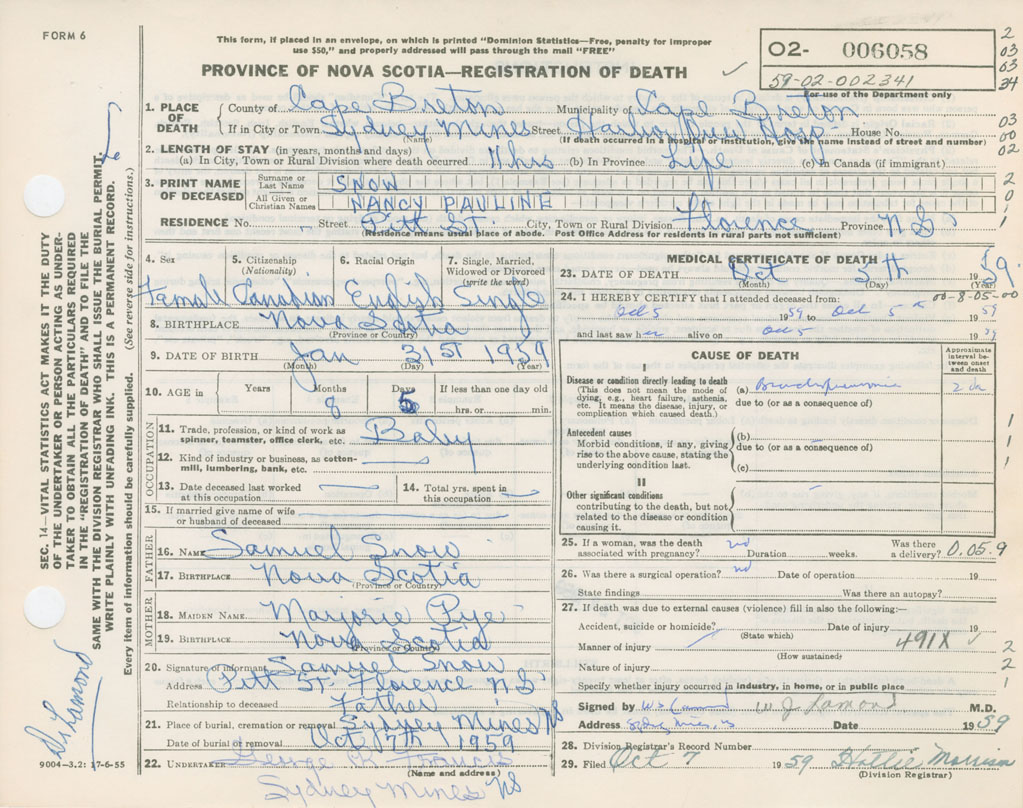 FORM 6
This form, if placed in an envelope, on which is printed "Dominion Statistics—Free, penalty for improper
use $50," and properly addressed will pass through the mail "FREE"
O2- 006058
59-02-002341
For use of the Department only
PROVINCE OF NOVA SCOTIA—REGISTRATION OF DEATH
2
03
03
34
1. PLACE OF DEATH County of Cape Breton Municipality of Cape Breton
If in City or Town Sydney Mines Street Harbor View Hosp House No.
(Name) (If death occurred in a hospital or institution, give the name instead of street and number)
03
00
02
2. LENGTH OF STAY (in years, months and days)
(a) In City, Town or Rural Division where death occurred 11 hrs (b) In Province Life (c) In Canada (if immigrant)
3. PRINT NAME OF DECEASED Surname or Last Name SNOW
All Given or Christian Names NANCY PAULINE
2
0
1
RESIDENCE No. Street Pitt St. City, Town or Rural Division Florence Province N S
(Residence means usual place of abode. Post Office Address for residents in rural parts not sufficient)
4. Sex 5. Citizenship (Nationality) 6. Racial Origin 7. Single, Married, Widowed or Divorced (write the word)
Female Canadian English Single
8. BIRTHPLACE Nova Scotia
(Province or Country)
9. DATE OF BIRTH Jan 31st 1959
(Month) (Day) (Year)
10. AGE in Years Months Days If less than one day old
8 hrs. or min.
OCCUPATION
11. Trade, profession, or kind of work as spinner, teamster, office clerk, etc. Baby
12. Kind of industry or business, as cotton-mill, lumbering, bank, etc.
13. Date deceased last worked at this occupation
14. Total yrs. spent in this occupation
15. If married give name of wife or husband of deceased
FATHER
16. NAME Samuel Snow
17. BIRTHPLACE Nova Scotia
(Province or Country)
MOTHER
18. MAIDEN NAME Marjorie Pye
19. BIRTHPLACE Nova Scotia
(Province or Country)
20. Signature of informant Samuel Snow
Address Pitt St Florence N S
Relationship to deceased Father
21. Place of burial, cremation or removal Sydney Mines NS
Date of burial or removal Oct 7th 1959
22. UNDERTAKER George K Francis
(Name and address)
Sydney Mines NS
MEDICAL CERTIFICATE OF DEATH
23. DATE OF DEATH Oct 5th 1959
(Month) (Day) (Year)
24. I HEREBY CERTIFY that I attended deceased from: 00-8-05-00
Oct 5 1959 to Oct 5 1959
and last saw her alive on Oct 5 1959
CAUSE OF DEATH
Approximate interval between onset and death
I
Disease or condition directly leading to death (a) Bronchopneumonia 2 da
(This does not mean the mode of dying, e.g., heart failure, asthenia, etc. It means the disease, injury, or complication which caused death.)
due to (or as a consequence of)
Antecedent causes (b)
Morbid conditions, if any, giving rise to the above cause, stating the underlying condition last.
due to (or as a consequence of)
(c)
1
1
1
II
Other significant conditions contributing to the death, but not related to the disease or condition causing it.
25. If a woman, was the death associated with pregnancy? no Duration weeks. Was there a delivery? 0.05.9
26. Was there a surgical operation? no Date of operation 19
State findings Was there an autopsy?
27. If death was due to external causes (violence) fill in also the following:—
Accident, suicide or homicide? Date of injury 19
(State which)
Manner of injury 491X 2
(How sustained)
Nature of injury 2
Specify whether injury occurred in industry, in home, or in public place 1
Signed by W J Lamond M.D.
Address Sydney Mines, NS Date 1959
28. Division Registrar's Record Number
29. Filed Oct 7 1959 Hattie Morrison
(Division Registrar)
SEC. 14—VITAL STATISTICS ACT MAKES IT THE DUTY
OF THE UNDERTAKER OR PERSON ACTING AS UNDER-
TAKER TO OBTAIN ALL THE PARTICULARS REQUIRED
IN THE "REGISTRATION OF DEATH" AND TO FILE THE
SAME WITH THE DIVISION REGISTRAR WHO SHALL ISSUE THE BURIAL PERMIT.
WRITE PLAINLY WITH UNFADING INK. THIS IS A PERMANENT RECORD.
Every item of information should be carefully supplied. (See reverse side for instructions.)
Dr Lamond
9004-3.2: 17-6-55